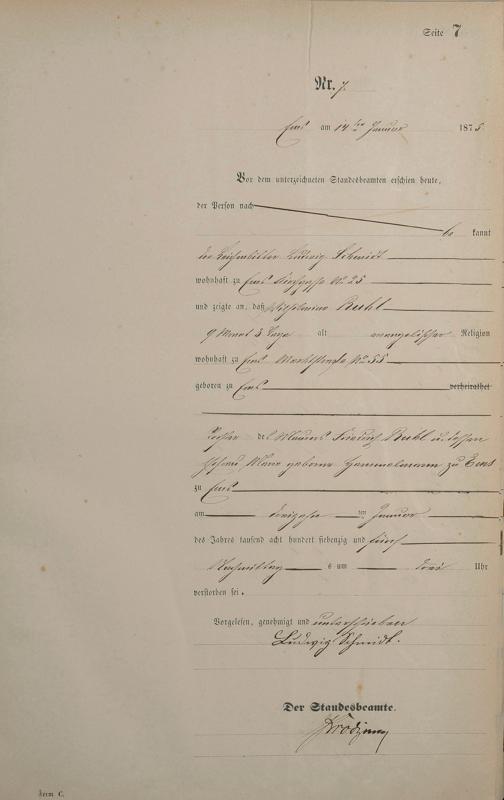 Seite 7
Nr. 7.
Ems am 14ten Januar 1875
Vor dem unterzeichneten Standesbeamten erschien heute,
der Person nach
be kannt
der Leichenbitter Ludwig Schmidt
wohnhaft zu Ems No 25
und zeigte an, daß Wilhelmine Buhl
9 Monat 3 Tage alt evangelischer Religion
wohnhaft zu Ems Marktstraße No 55
geboren zu Ems verheirathet
Tochter des Maurers Friedrich Buhl u. dessen
Ehefrau Marie geborne Hammelmann zu Ems
zu Ems
am dreizehn ten Januar
des Jahres tausend acht hundert siebenzig und fünf
Nachmittag s um drei Uhr
verstorben sei.
Vorgelesen, genehmigt und unterschrieben
Ludwig Schmidt.
Der Standesbeamte.
Form C.